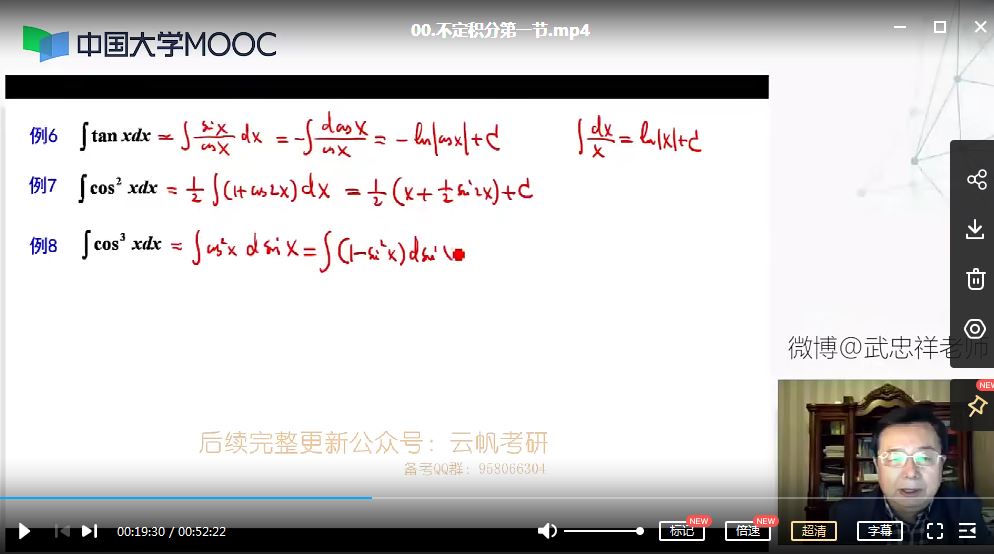 00.不定积分第一节.mp4
中国大学MOOC
例6 ∫tan xdx = ∫ sinx/cosx dx = -∫ dcosx/cosx = -ln|cosx|+C ∫ dx/x = ln|x|+C
例7 ∫cos² xdx = 1/2 ∫(1+cos2x)dx = 1/2 (x+1/2 sin2x)+C
例8 ∫cos³ xdx = ∫cos²x dsinx = ∫(1-sin²x)dsin
微博@武忠祥老师
NEW
后续完整更新公众号：云帆考研
备考QQ群：958066304
00:19:30 / 00:52:22
标记 NEW 倍速 NEW 超清 字幕